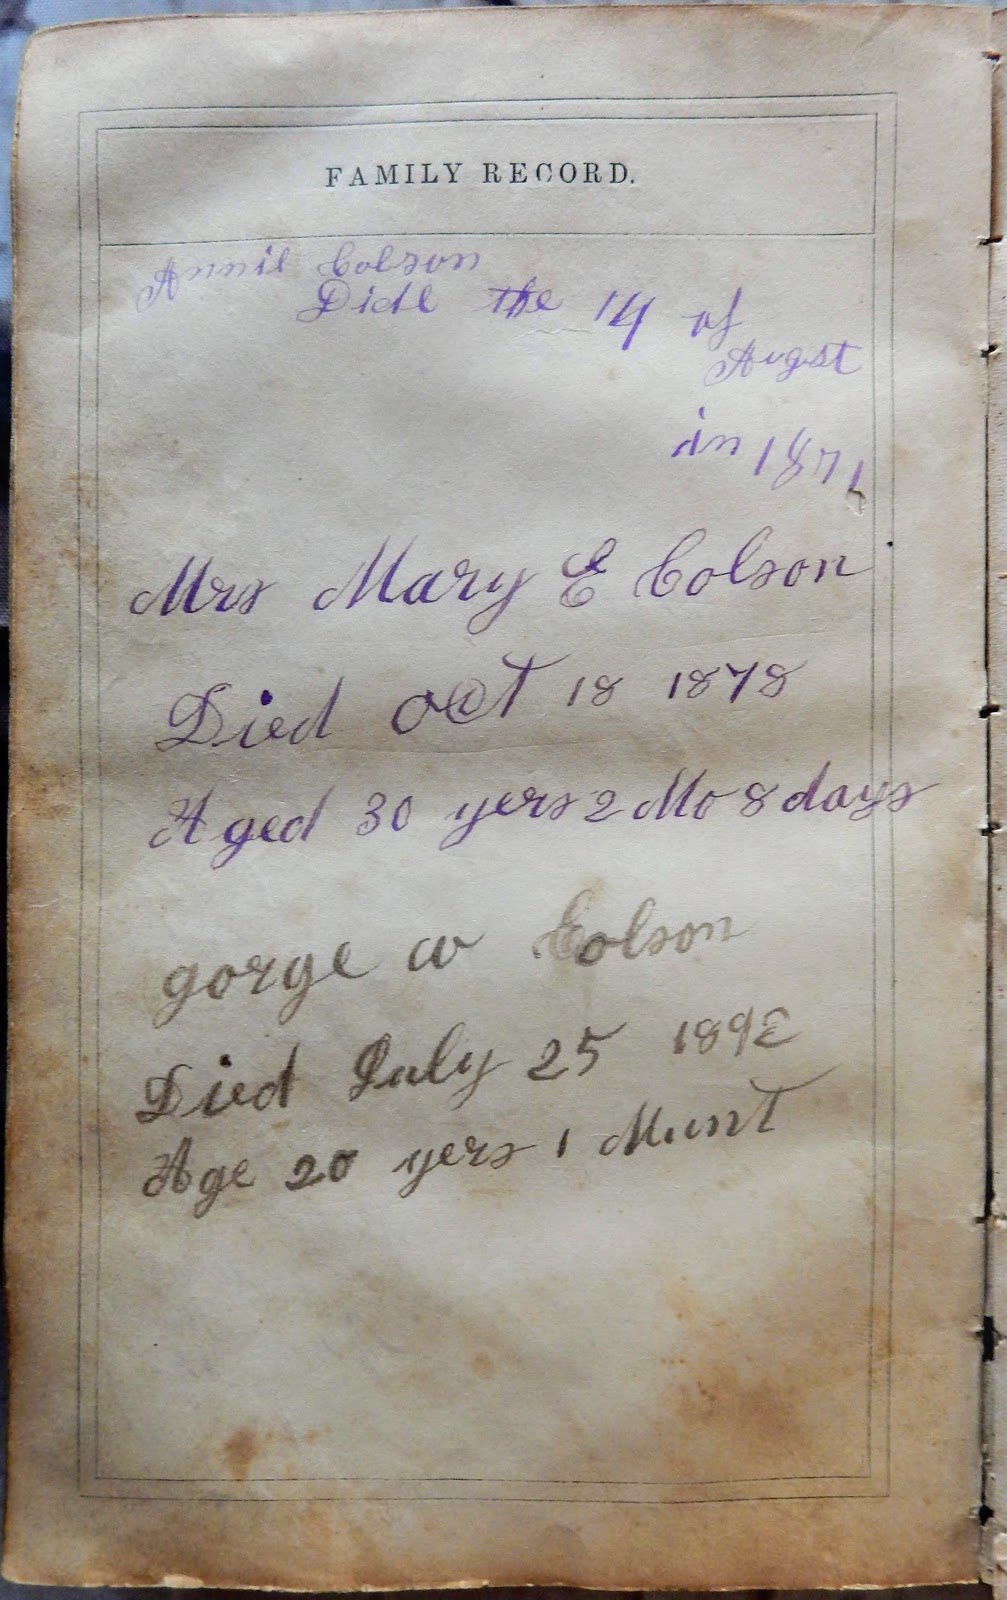 FAMILY RECORD.
Annie Colson
Didl the 14 of
Augst
in 1871
Mrs Mary E Colson
Died Oct 18 1878
Aged 30 yers 2 Mo 8 days
gorge w Colson
Died July 25 1892
Age 20 yers 1 Munt